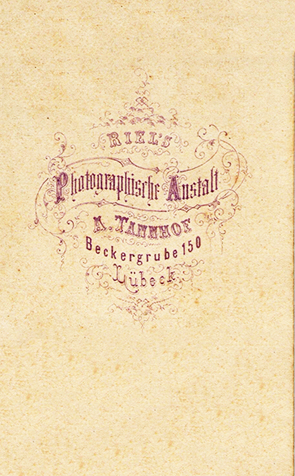 RIEL'S
Photographische Anstalt
A. TANNHOF
Beckergrube 150
Lübeck.